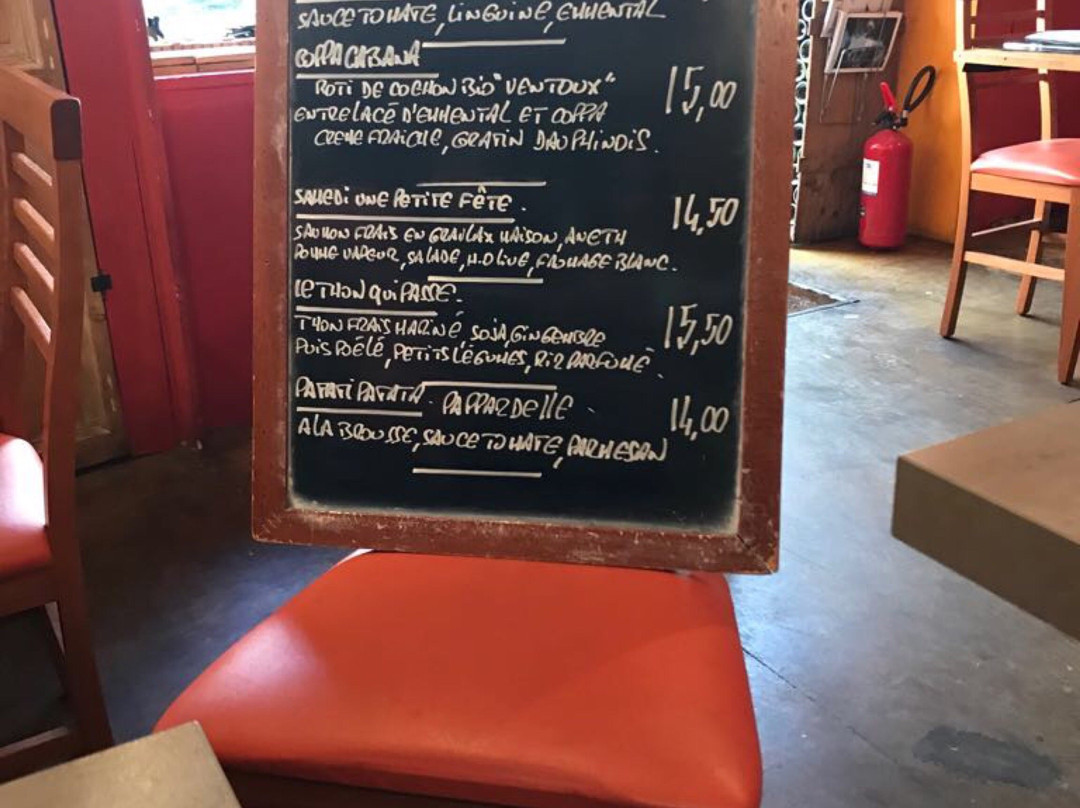 SAUCE TOMATE, LINGUINE, EMMENTAL
COPPA CABANA
ROTI DE COCHON BIO "VENTOUX"
15,00
ENTRELACÉ D'EMMENTAL ET COPPA
CREME FRAICHE, GRATIN DAUPHINOIS.
SAMEDI UNE PETITE FÊTE.
14,50
SAUMON FRAIS EN GRAVLAX MAISON, ANETH
POMME VAPEUR, SALADE, H.OLIVE, FROMAGE BLANC.
LE THON QUI PASSE.
THON FRAIS MARINÉ SOJA, GINGEMBRE
15,50
PUIS POÊLÉ, PETITS LÉGUMES, RIZ PARFUMÉ.
PATATI PATATA. PAPPARDELLE
14,00
A LA BROUSSE, SAUCE TOMATE, PARMESAN